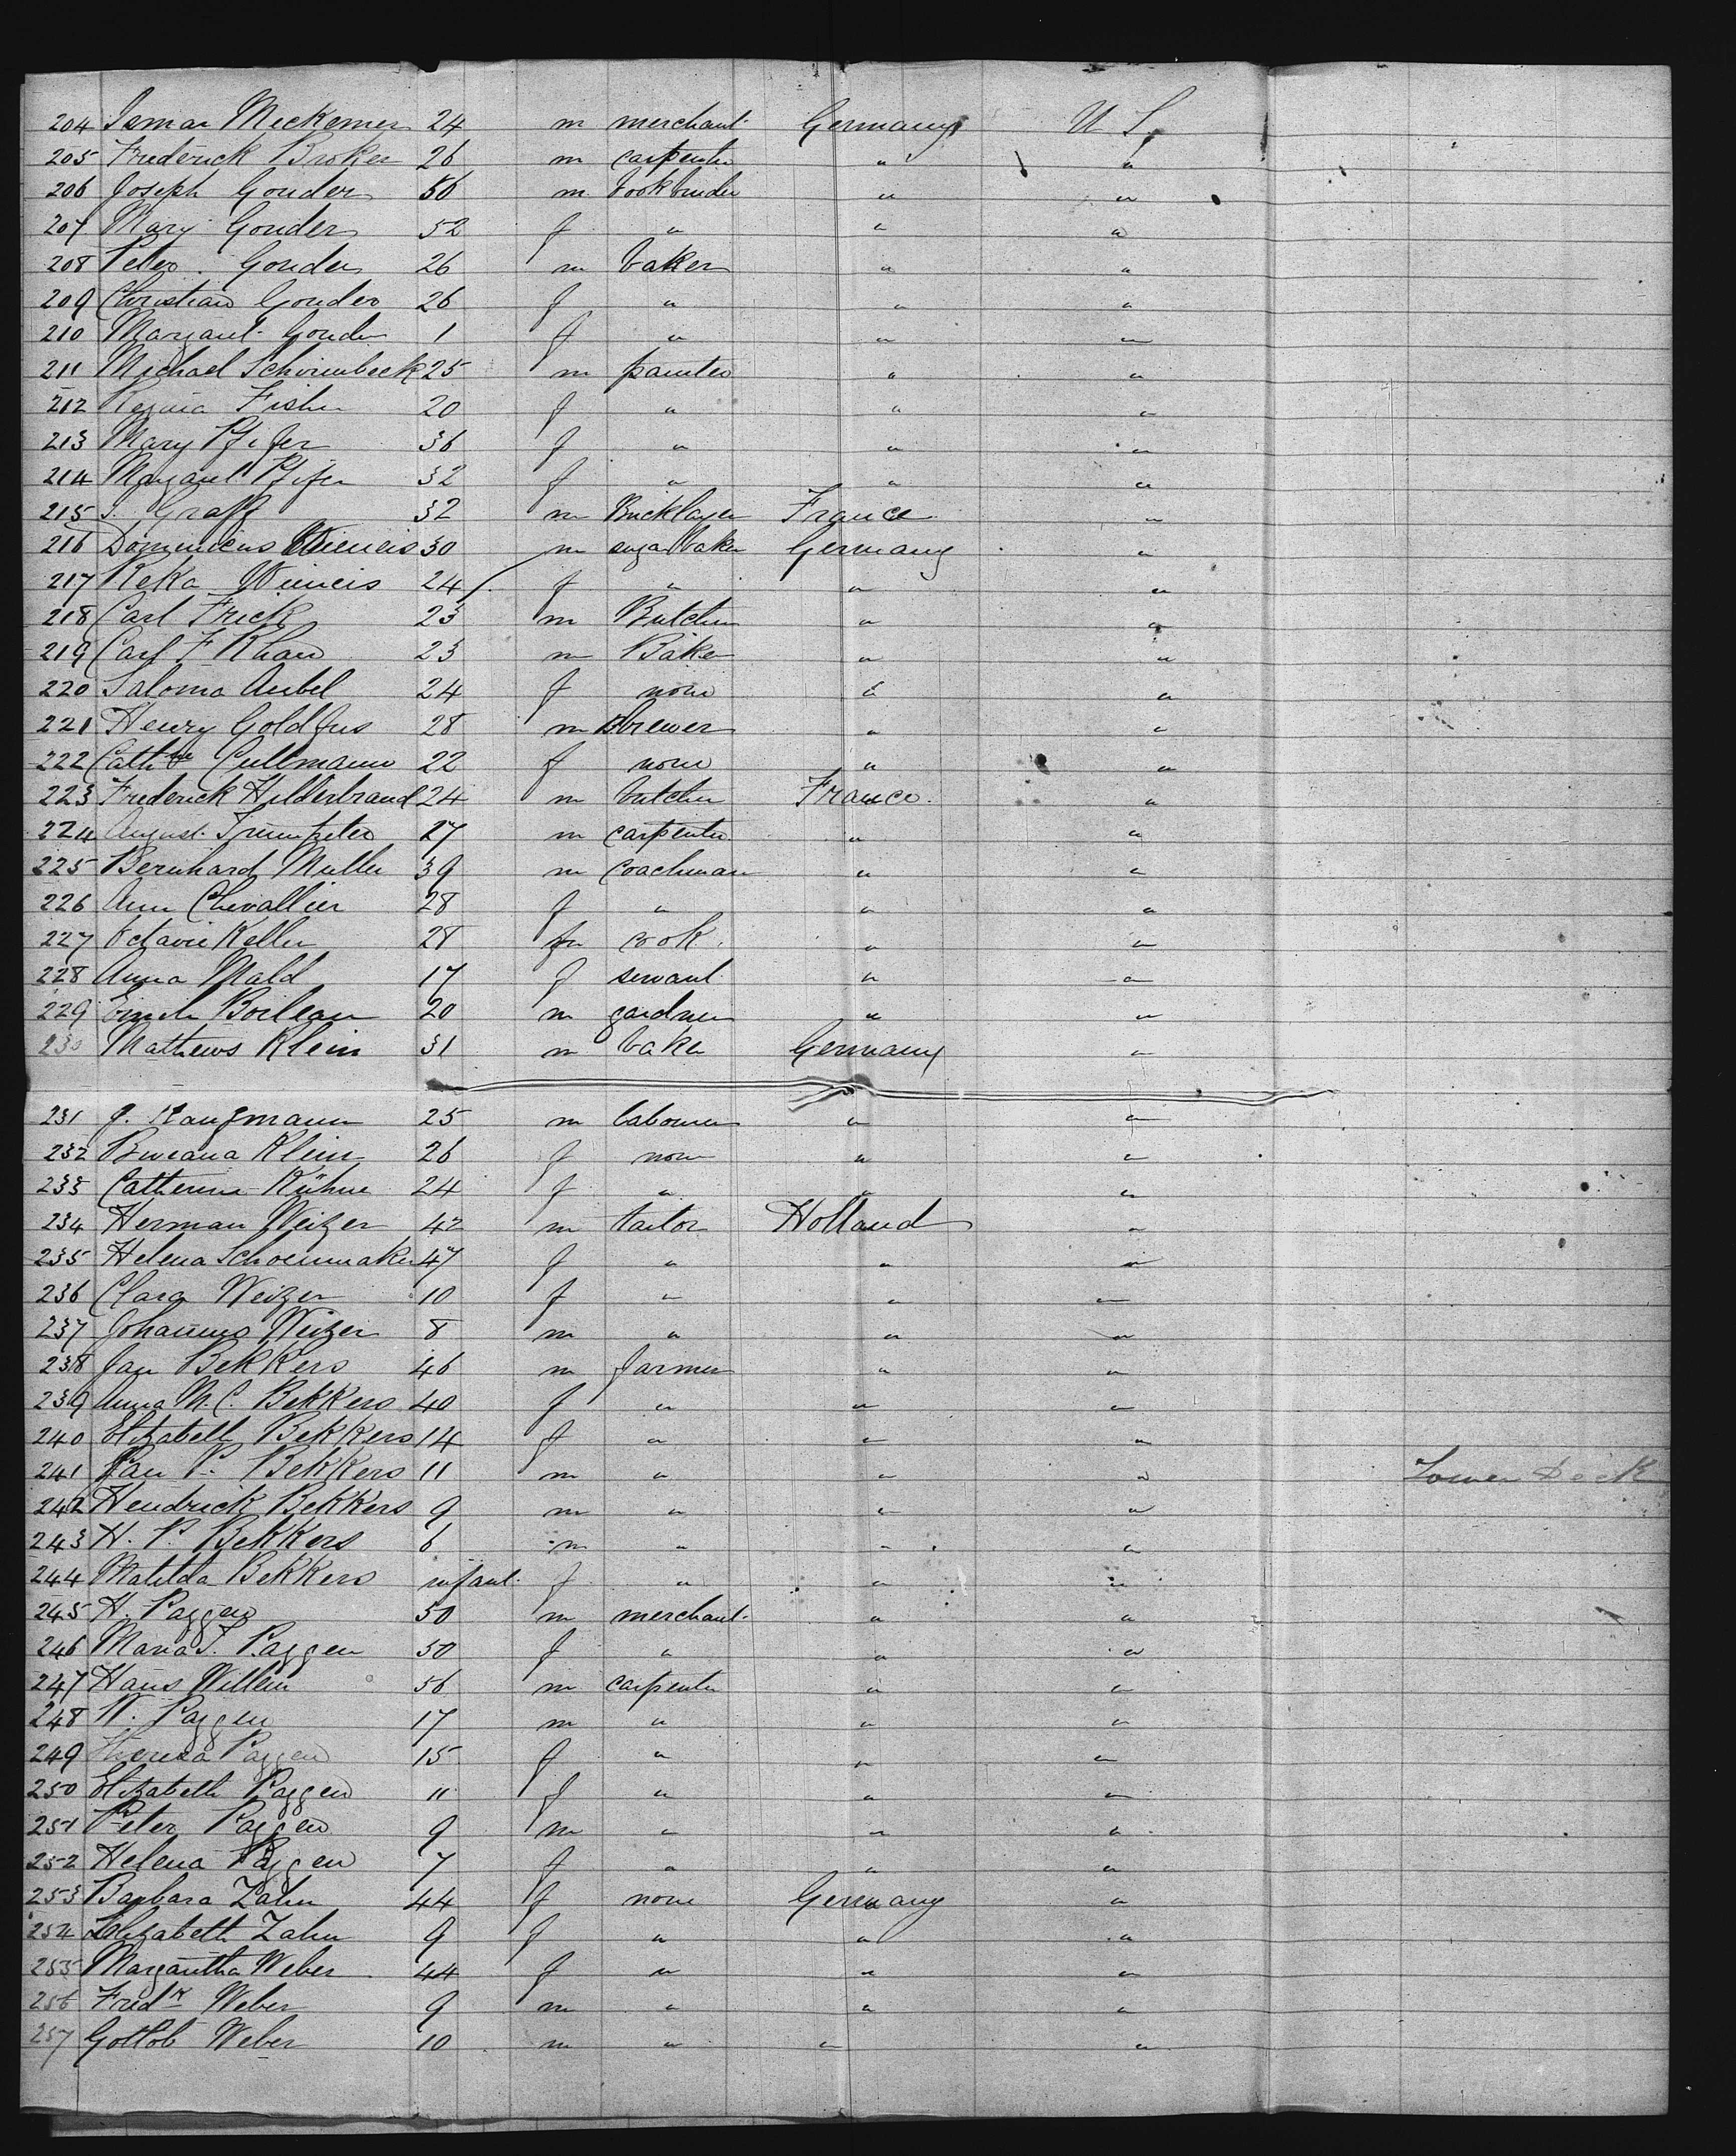 204 Ismar Meckemer 24 m merchant Germany U S
205 Frederick Broker 26 m carpenter " "
206 Joseph Gonder 56 m bookbinder " "
207 Mary Gonder 52 f " " "
208 Peter Gonder 26 m baker " "
209 Christian Gonder 26 f " " "
210 Margaret Gonder 1 f " " "
211 Michael Schirmbeck 25 m painter " "
212 Regina Fisher 20 f " " "
213 Mary Pfifer 36 f " " "
214 Margaret Pfifer 32 f " " "
215 J. Graff 32 m Bricklayer France "
216 Domenicus Wieneis 30 m sugar baker Germany "
217 Reka Wieneis 24 f " " "
218 Carl Frick 23 m Butcher " "
219 Carl F Khan 23 m Baker " "
220 Saloma Aubel 24 f none " "
221 Henry Goldfus 28 m brewer " "
222 Cathne Cullmann 22 f none " "
223 Frederick Hilderbrand 24 m butcher France "
224 August Trumpeter 27 m carpenter " "
225 Bernhard Muller 39 m coachman " "
226 Ann Chevallier 28 f " " "
227 Octavie Keller 28 cook " "
228 Anna Mald 17 f servant " "
229 Emile Boileau 20 m gardner " "
230 Mathews Klein 31 m baker Germany "
231 J. Kaufmann 25 m labourer " "
232 Klein 26 f none " "
233 Catherina Kühne 24 f " " "
234 Herman Weizer 42 m tailor Holland "
235 Helena Schoenmaker 47 f " " "
236 Clara Weizer 10 f " " "
237 Johannes Weizer 8 m " " "
238 Jan Bekkers 46 m farmer " "
239 Anna M. C. Bekkers 40 f " " "
240 Elizabeth Bekkers 14 f " " "
241 Jan P. Bekkers 11 m " " " Lower Deck
242 Hendrick Bekkers 9 m " " "
243 H. P. Bekkers 6 m " " "
244 Matilda Bekkers infant f " " "
245 H. Paggen 50 m merchant " "
246 Maria T. Paggen 50 f " " "
247 Hans Willem 56 m carpenter " "
248 W. Paggen 17 m " " "
249 Theresa Paggen 15 f " " "
250 Elizabeth Paggen 11 f " " "
251 Peter Paggen 9 m " " "
252 Helena Paggen 7 f " " "
253 Barbara Zahn 44 f none Germany "
254 Elizabeth Zahn 9 f " " "
255 Margaritha Weber 44 f " " "
256 Fredk Weber 9 m " " "
257 Gottlob Weber 10 m " " "